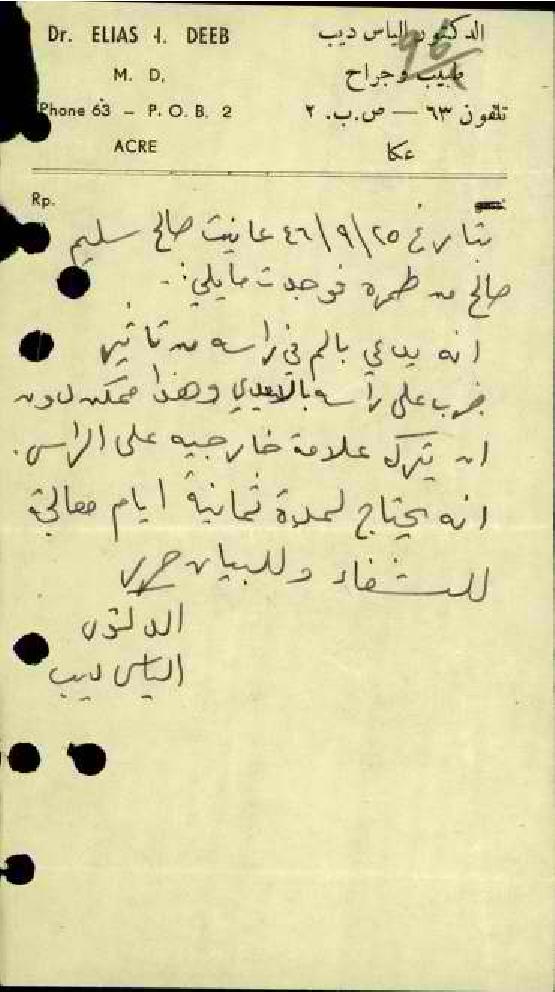 Dr. ELIAS I. DEEB
M. D.
Phone 63 – P. O. B. 2
ACRE
الدكتور الياس ديب
طبيب وجراح
تلفون ٦٣ — ص.ب. ٢
عكا
96
Rp.
بتاريخ ٤٦/٩/٢٥ عاينت صالح سليم
صالح من طمره فوجدت مايلي :-
انه يدعي بالم في راسه من تاثير
ضرب على راسه بالايدي وهذا ممكن بدون
ان يترك علامة خارجيه على الراس.
انه يحتاج لمدة ثمانية ايام معالجة
للشفاء وللبيان حرر
الدكتور
الياس ديب